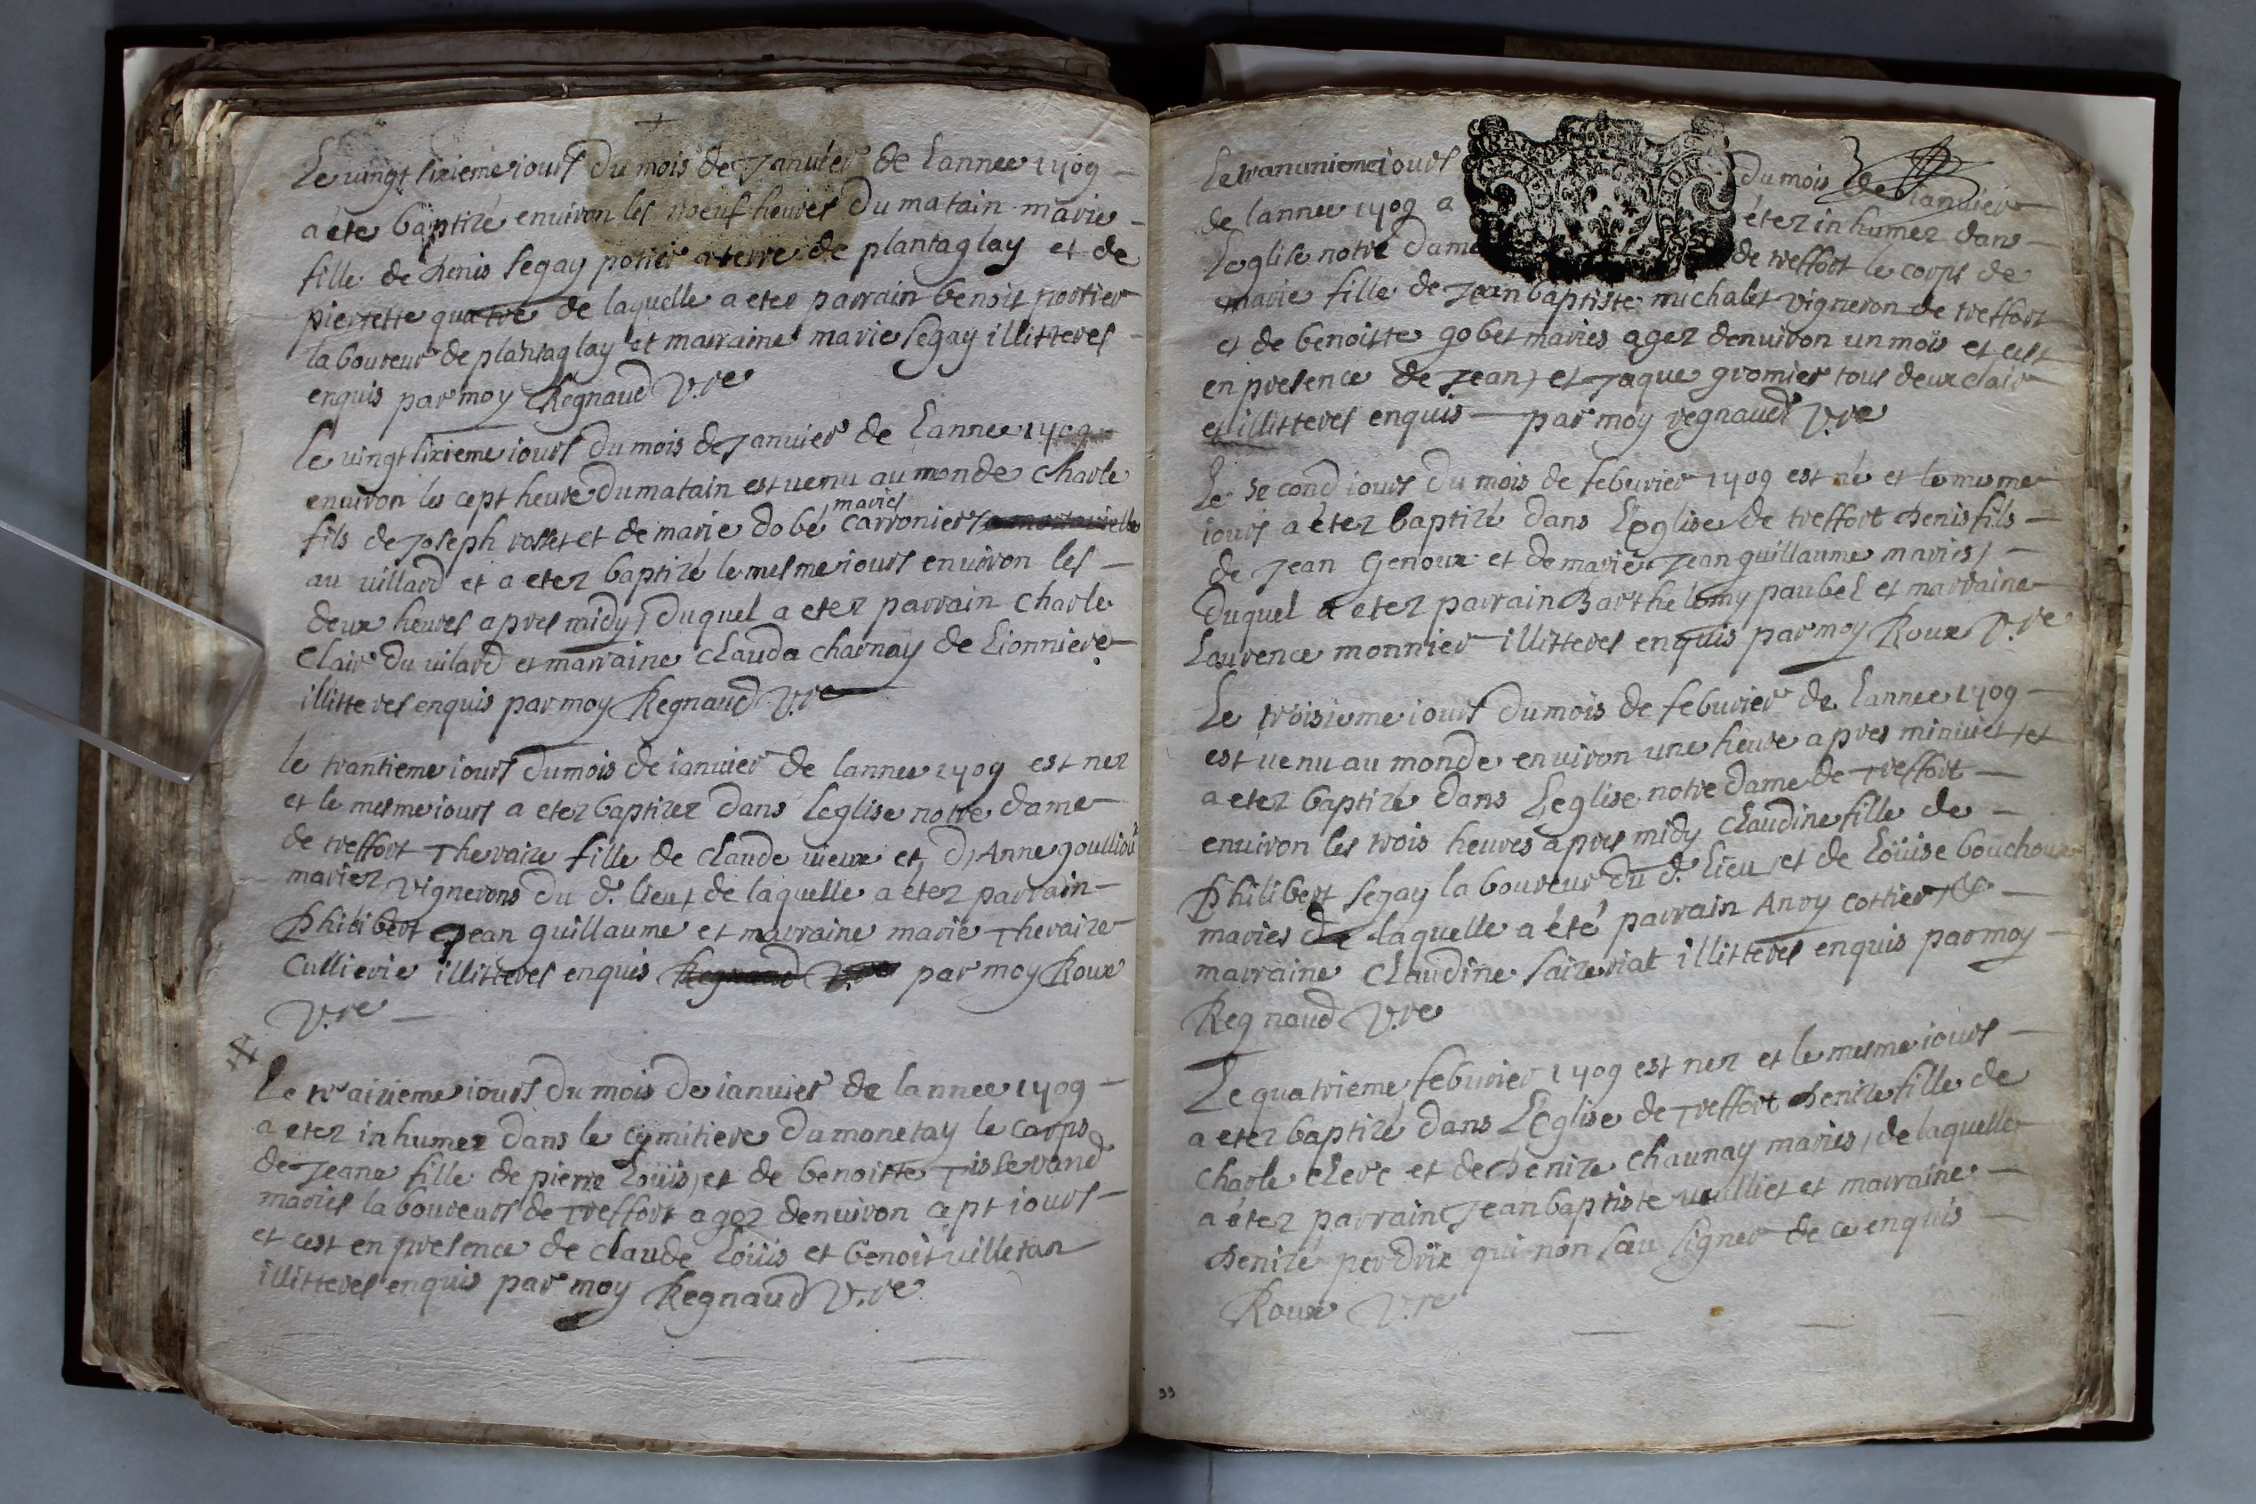 Le uingt sixieme iours du mois de Januier de Lannee 1709 –
a ete baptizé enuiron les noeuf heures du matain marie –
fille de denis segay potier a terre de plantaglay et de
pierrette quatre de laquelle a etez parrain benoit portier
laboureur de plantaglay et marraine marie segay illitteres –
enquis par moy Regnaud V.re
Le uingt sixieme iours du mois de Januier de Lannee 1709
enuiron les cept heure du matain est uenu au monde charle
maries
fils de Joseph rosset et de marie dobé carronier
au uillard et a etez baptizé le mesme iours enuiron les –
deux heures apres midy, duquel a etez parrain charle
clair du uilard et marraine clauda charnay de Lionniere –
illitteres enquis par moy Regnaud V.re
le trantieme iours du mois de ianuier de lannee 1709 est nez
et le mesme iours a etez baptizez dans Leglise notre dame –
de treffort Theraize fille de claude uieux et d'Anne goullioux
mariez vignerons du d. lieu, de laquelle a étez parrain –
Philibert Jean guillaume et marraine marie Theraize
Cullierie illitteres enquis Regnaud V.re par moy Roux
V.re –
Le traizieme iours du mois de ianuier de lannee 1709 –
a etez inhumez dans le cymitiere du monetay le corps
de Jeane fille de pierre Loüis, et de benoitte Tisserand
maries laboureurs de Treffort agez denuiron cept iours –
et cest en presence de claude Loüis et benoit uilletan
illitteres enquis par moy Regnaud V.re
Le tranunieme iours du mois de ianuier –
de lannee 1709 a étez inhumez dans –
Leglise notre dame de treffort le corps de
marie fille de Jean baptiste michalet vigneron de treffort
et de benoitte gobet maries agez denuiron un mois et cest
en presence de Jean, et Jaque gromier tous deux clair
et illitteres enquis — par moy regnaud V.re
Le second iours du mois de feburier 1709 est né et le mesme
iours a étez baptizé dans Leglise de treffort denis fils –
de Jean Genoux et de marie Jean guillaume maries, –
duquel a etez parrain Barthelemy paubel et marraine
Laurence monnier illitteres enquis par moy Roux V.re
Le troisieme iours du mois de feburier de Lannee 1709 –
est uenu au monde enuiron une heure apres minuict, et
a etez baptizé dans Leglise notre dame de Treffort –
enuiron les trois heures apres midy claudine fille de –
Philibert segay laboureur du d. lieu, et de Loüise bouchoux
maries de laquelle a été parrain Anry cottier, & –
marraine claudine saizeriat illitteres enquis par moy –
Regnaud V.re
Le quatrieme feburier 1709 est nez et le mesme iours –
a etez baptizé dans Leglise de Treffort denize fille de
charle clerc et de denize chaunay maries, de laquelle
a étez parrain Jean baptiste uulliet et marraine –
denize perdrix qui non sau signer de ce enquis –
Roux V.re
33